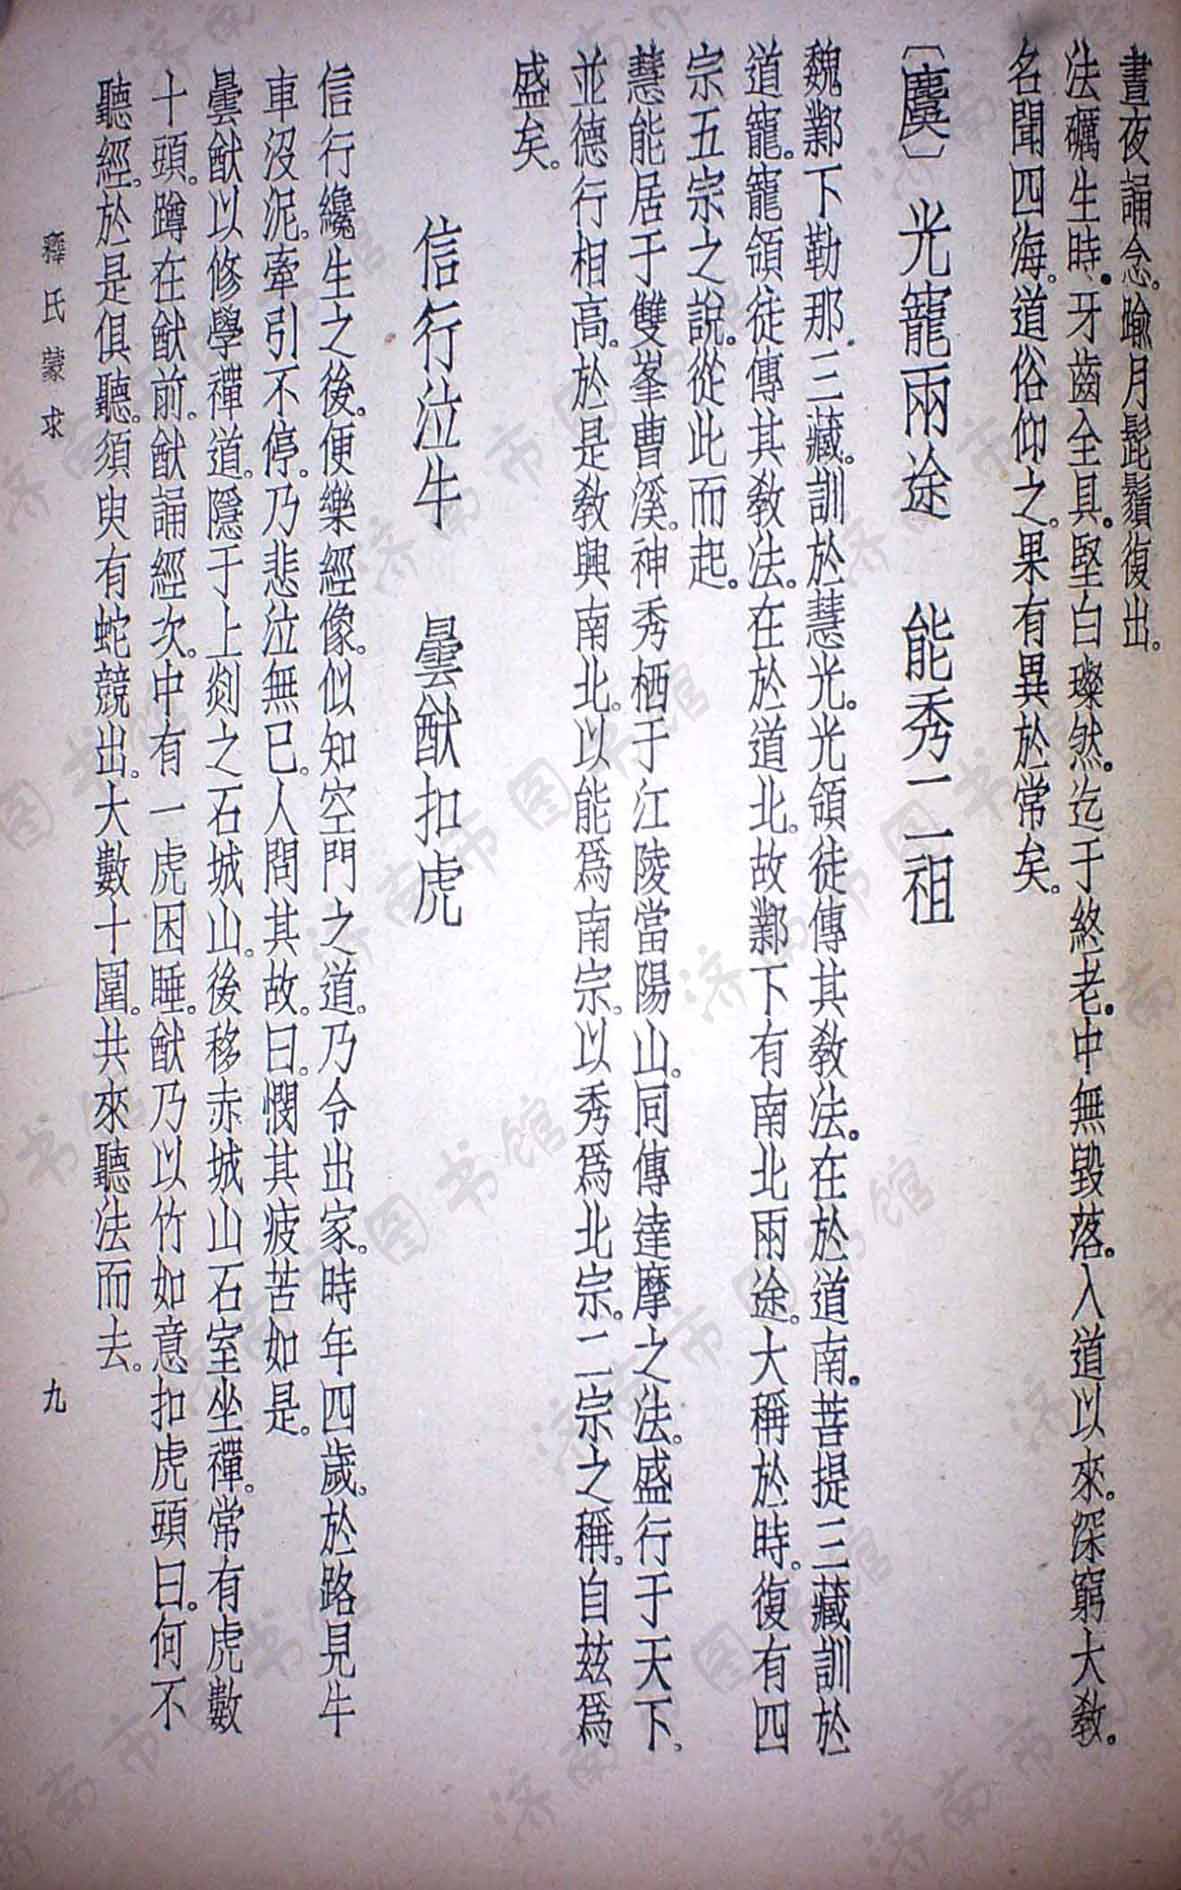 晝夜誦念。踰月髭鬚復出。
法礪生時。牙齒全具。堅白璨然。迄于終老。中無毀落。入道以來。深窮大教。
名聞四海。道俗仰之。果有異於常矣。
〔麌〕光寵兩途　能秀二祖
魏鄴下勒那三藏。訓於慧光。光領徒傳其敎法。在於道南。菩提三藏訓於
道寵。寵領徒傳其敎法。在於道北。故鄴下有南北兩途。大稱於時。復有四
宗五宗之說。從此而起。
慧能居于雙峯曹溪。神秀栖于江陵當陽山。同傳達摩之法。盛行于天下。
並德行相高。於是敎興南北。以能爲南宗。以秀爲北宗。二宗之稱。自玆爲
盛矣。
信行泣牛　曇猷扣虎
信行纔生之後。便樂經像。似知空門之道。乃令出家。時年四歲。於路見牛
車沒泥。牽引不停。乃悲泣無已。人問其故。曰。憫其疲苦如是。
曇猷以修學禪道。隱于上剡之石城山。後移赤城山石室坐禪。常有虎數
十頭。蹲在猷前。猷誦經次。中有一虎困睡。猷乃以竹如意扣虎頭曰。何不
聽經。於是俱聽。須臾有蛇競出。大數十圍。共來聽法而去。
釋氏蒙求　九
济南市图书馆